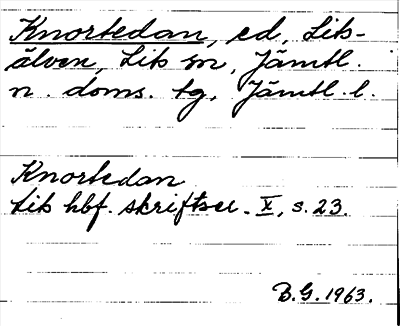 Knortedan, ed, Lik-
älven, Lit sn, Jämtl.
n. doms. tg, Jämtl. l.
Knortedan
Lits hbf. skriftser. X, s. 23.
B.G. 1963.